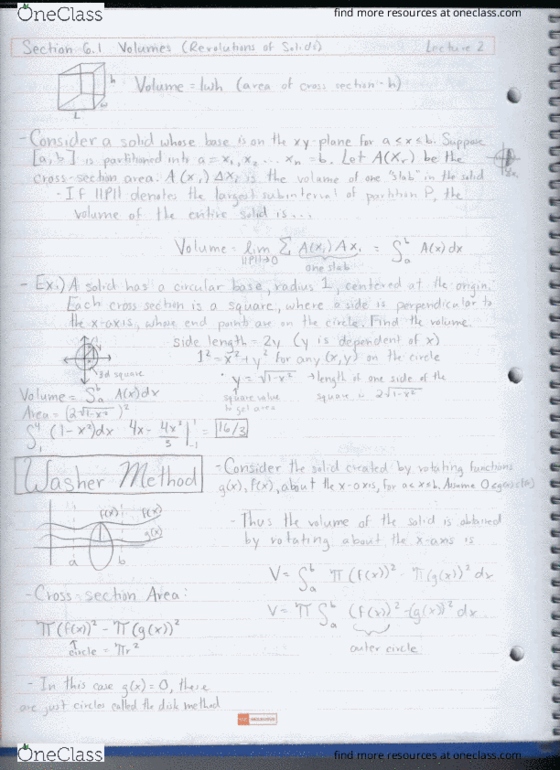 OneClass
find more resources at oneclass.com
Section 6.1 Volumes (Revolutions of Solids) Lecture 2
h
w
L
Volume = lwh (area of cross section · h)
- Consider a solid whose base is on the xy-plane for a ≤ x ≤ b. Suppose
[a,b] is partitioned into a = x₁, x₂ ... xₙ = b. Let A(Xᵣ) be the
cross-section area. A(x₁)Δx₂ is the volume of one "slab" in the solid
- If ||P|| denotes the largest subinterval of partition P, the
volume of the entire solid is...
Volume = lim ||P||→0 Σ A(x₁)Δx₁ = ∫ₐᵇ A(x)dx
one slab
- Ex.) A solid has a circular base, radius 1, centered at the origin.
Each cross section is a square, where a side is perpendicular to
the x-axis, whose end points are on the circle. Find the volume.
side length = 2y (y is dependent of x)
1² = x² + y² for any (x,y) on the circle
3d square
· y = √1-x² → length of one side of the
square is 2√1-x²
Volume = ∫ₐᵇ A(x)dx
square value
to get area
Area = (2√1-x²)²
(1-x²)dx 4x - 4x³/3 |¹₋₁ = 16/3
Washer Method
- Consider the solid created by rotating functions
g(x), f(x), about the x-axis, for a≤x≤b. Assume
f(x) f(x)
g(x)
a b
- Thus the volume of the solid is obtained
by rotating about the x-axis is
V = ∫ₐᵇ π(f(x))² - π(g(x))² dx
- Cross-section Area:
V = π∫ₐᵇ (f(x))² - (g(x))² dx
π(f(x))² - π(g(x))²
circle = πr²
outer circle
- In this case g(x) = 0, there
are just circles called the disk method
OneClass
find more resources at oneclass.com